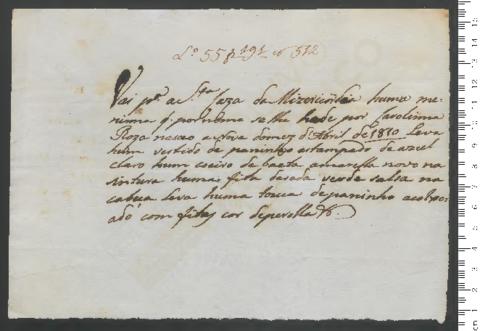 Lº 55 f 191 nº 512
Vai pª a Sta Caza da Mizericordia huma me-
nina q. por nome se lhe hade por Carolinna
Roza nasceo a nove do mez d'Abril de 1810 Leva
hum vestido de paninho estampado de azul
claro hum coeiro de baeta amarella novo na
sintura huma fita de seda verde salsa na
cabeça leva huma touca de paninho acolxo-
ado com fitas cor de perolla &.